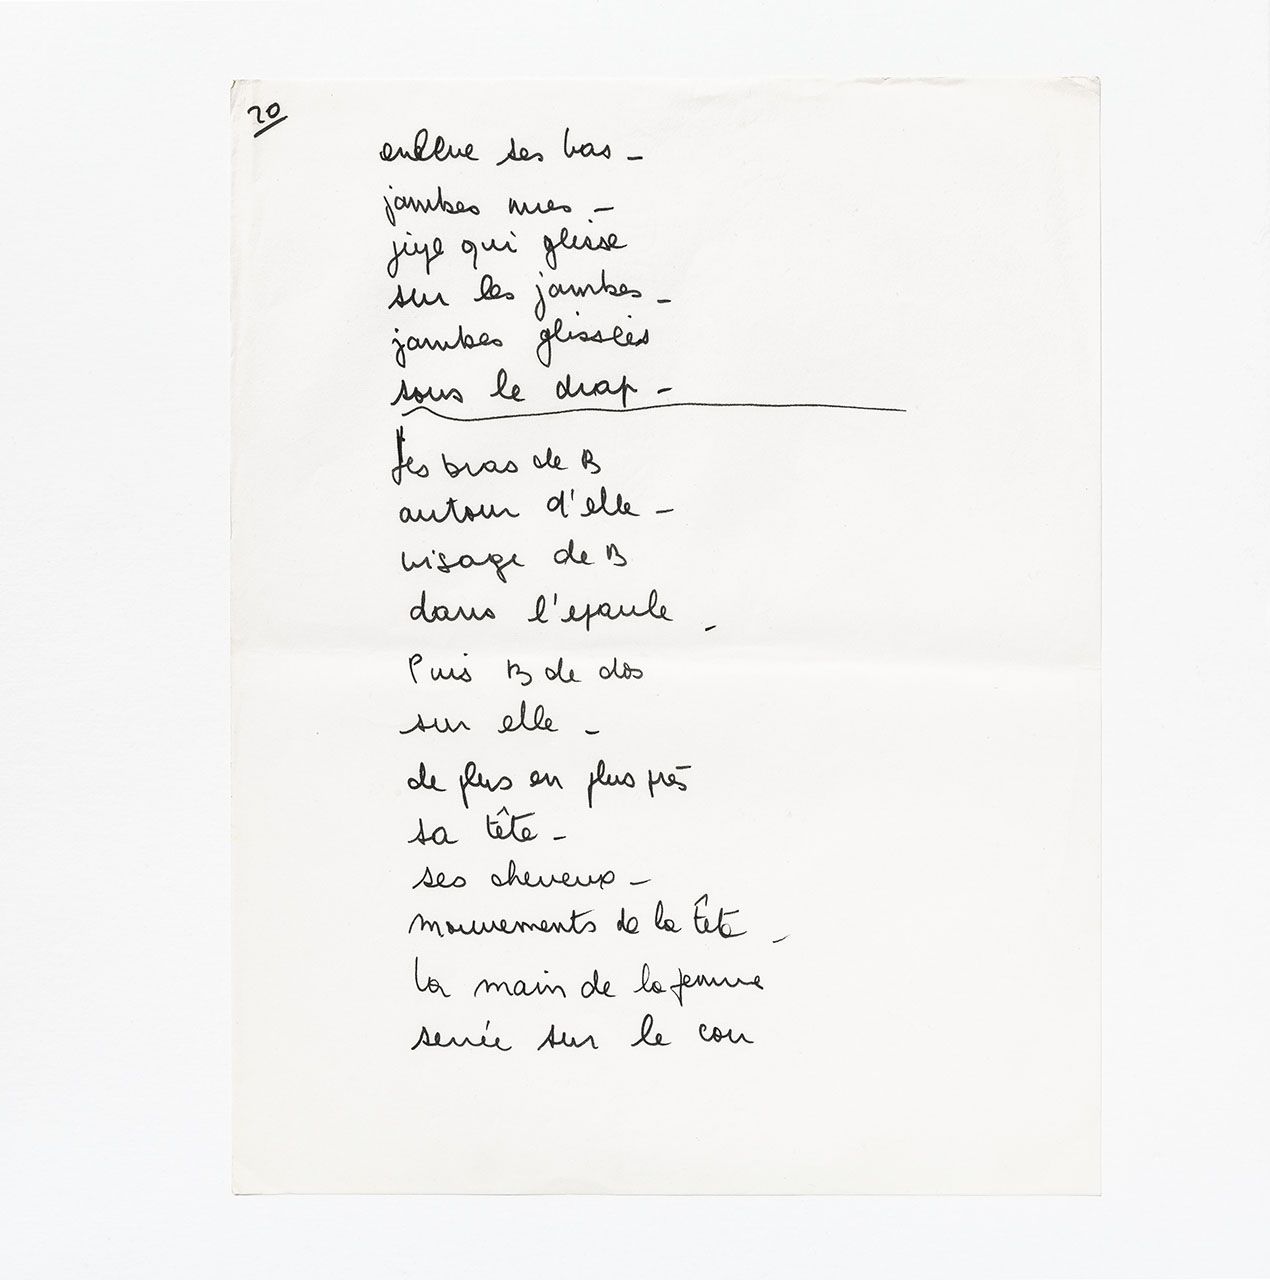 20
enlève ses bas –
jambes nues –
jupe qui glisse
sur les jambes –
jambes glissées
sous le drap –
les bras de B
autour d'elle –
visage de B
dans l'epaule –
Puis B de dos
sur elle –
de plus en plus près
sa tête –
ses cheveux –
mouvements de la tête –
la main de la femme
serrée sur le cou